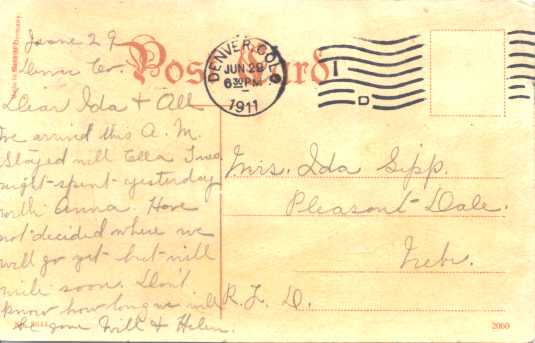 June 29
Denver Co.
Dear Ida & All
We arrived this A. M.
Stayed with Ella Two
night-spent-yesterday
with Anna. Have
not decided where we
will go yet-but-will
write soon. Don't
know how long we will
be gone Will & Helen.
Post Card
DENVER, COLO
JUN 29
630 PM
1911
D
Mrs. Ida Sipp.
Pleasant-Dale.
Nebr.
R. F. D.
2060